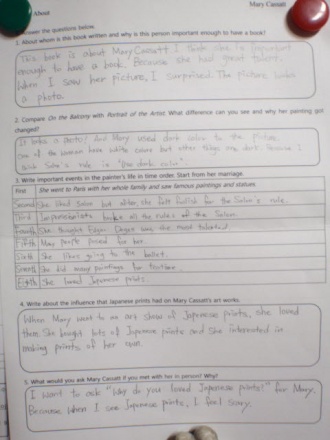 About
Mary Cassatt
Answer the questions below.
1. About whom is this book written and why is this person important enough to have a book?
This book is about Mary Cassatt. I think she is important
enough to have a book. Because she had great talent.
When I saw her picture, I surprised. The picture looks
a photo.
2. Compare On the Balcony with Portrait of the Artist. What difference can you see and why her painting got
changed?
It looks a photo! And Mary used dark color to the picture.
one of the woman have white color but other things are dark. Because I
think Salon's rule is "Use dark color".
3. Write important events in the painter's life in time order. Start from her marriage.
First
She went to Paris with her whole family and saw famous paintings and statues.
Second She liked Salon but after, she felt foolish for the Salon's rule.
Third Impressionists broke all the rules of the Salon.
Fourth She thought Edgar Degas was the most talented.
Fifth Many people posed for her.
Sixth She likes going to the ballet.
Seventh She did many paintings for
Eighth She loved Japanese prints.
4. Write about the influence that Japanese prints had on Mary Cassatt's art works.
When Mary went to an art show of Japanese prints, she loved
them. She bought lots of Japanese prints and she interested in
making prints of her own.
5. What would you ask Mary Cassatt if you met with her in person? Why?
I want to ask "Why do you loved Japanese prints?" for Mary.
Because when I see Japanese prints, I feel scary.